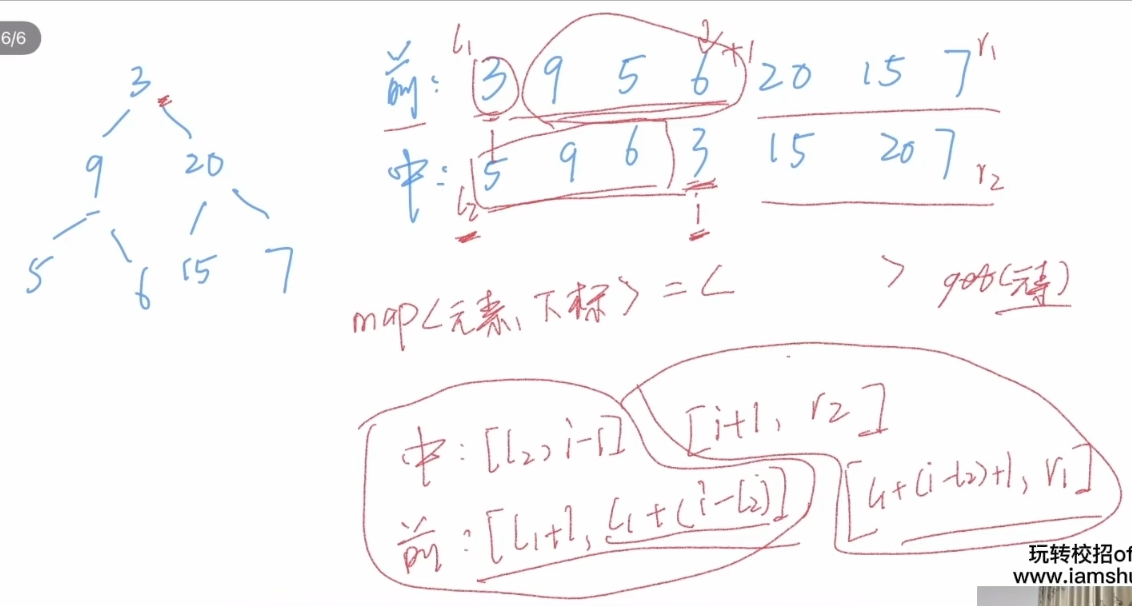 6/6
3
9 20
5 6 15 7
前: 3 9 5 6 20 15 7
l1 +1 r1
中: 5 9 6 3 15 20 7
l2 i r2
map<元素, 下标> = < > get(元素)
中: [l2, i-1] [i+1, r2]
前: [l1+1, l1+(i-l2)] [l1+(i-l2)+1, r1]
玩转校招of
www.iamshu